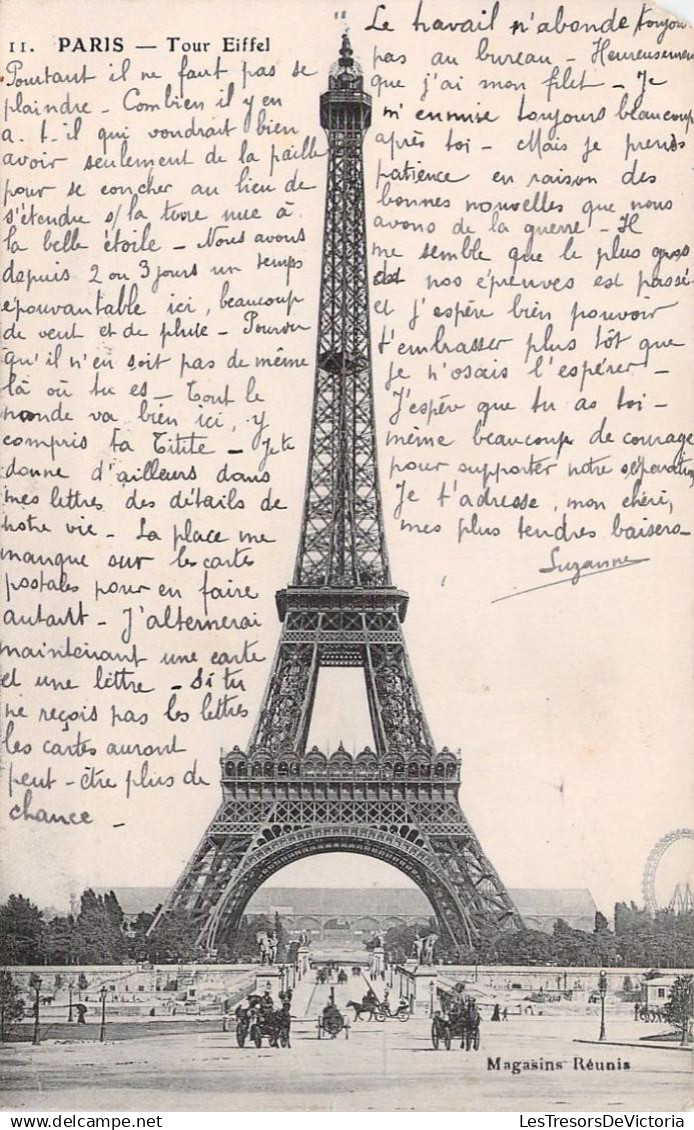 11. PARIS — Tour Eiffel
Pourtant il ne faut pas se
plaindre - Combien il y en
a-t-il qui voudrait bien
avoir seulement de la paille
pour se coucher au lieu de
s'étendre s/la terre nue à
la belle étoile - Nous avons
depuis 2 ou 3 jours un temps
épouvantable ici, beaucoup
de vent et de pluie - Pourvu
qu'il n'en soit pas de même
là où tu es - Tout le
monde va bien ici, y
compris ta Titite - Je te
donne d'ailleurs dans
mes lettres des détails de
notre vie - La place me
manque sur les cartes
postales pour en faire
autant - J'alternerai
maintenant une carte
et une lettre - Si tu
ne reçois pas les lettres
les cartes auront
peut-être plus de
chance -
Le travail n'abonde toujours
pas au bureau - Heureusement
que j'ai mon filet - Je
m'ennuie toujours beaucoup
après toi - Mais je prends
patience en raison des
bonnes nouvelles que nous
avons de la guerre - Il
me semble que le plus gros
de nos épreuves est passé
et j'espère bien pouvoir
t'embrasser plus tôt que
je n'osais l'espérer -
J'espère que tu as toi-
même beaucoup de courage
pour supporter notre séparation
Je t'adresse, mon chéri,
mes plus tendres baisers -
Suzanne
Magasins Réunis
LesTresorsDeVictoria
Delcampe.net